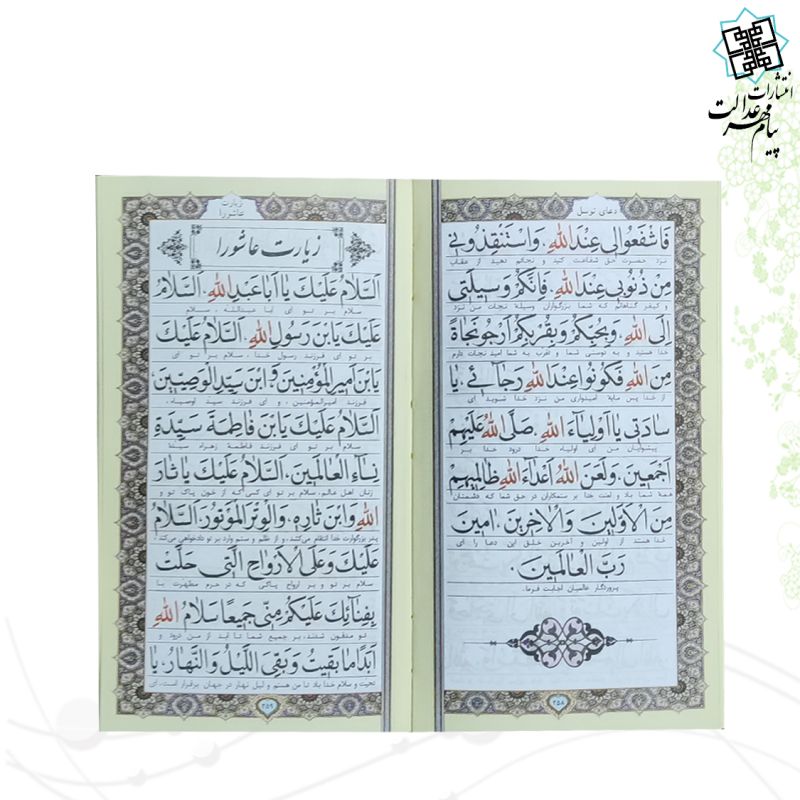 انتشارات
پیام مهر عدالت
دعای توسل
فَاشْفَعُوا لِی عِنْدَ اللهِ، وَاسْتَنْقِذُونِی
نزد حضرت حق شفاعت کنید و نجاتم دهید از عقاب
مِنْ ذُنُوبِی عِنْدَ اللهِ، فَاِنَّکُمْ وَسِیلَتِی
و کیفر گناهانم که شما بزرگواران وسیله نجات من نزد
اِلَی اللهِ، وَبِحُبِّکُمْ وَبِقُرْبِکُمْ اَرْجُو نَجَاةً
خدا هستید و به دوستی شما و تقرب به شما امید نجات دارم
مِنَ اللهِ فَکُونُوا عِنْدَ اللهِ رَجَائِی، یَا
از خدا پس مایه امیدواری من نزد خدا شوید ای
سَادَتِی یَا اَوْلِیَاءَ اللهِ، صَلَّی اللهُ عَلَیْهِمْ
پیشوایان من ای اولیاء خدا درود خدا بر
اَجْمَعِینَ، وَلَعَنَ اللهُ اَعْدَاءَ اللهِ ظَالِمِیهِمْ
همه شما باد و لعنت خدا بر ستمکاران در حق شما که دشمنان
مِنَ الْاَوَّلِینَ وَالْاٰخِرِینَ، اٰمِینَ
خدا هستند از اولین و آخرین خلق این دعا را ای
رَبَّ الْعَالَمِینَ.
پروردگار عالمیان اجابت فرما.
۲۵۸
زیارت
عاشورا
زیارت عاشورا
اَلسَّلَامُ عَلَیْکَ یَا اَبَا عَبْدِ اللهِ، اَلسَّلَامُ
سلام بر تو ای ابا عبدالله، سلام
عَلَیْکَ یَابْنَ رَسُولِ اللهِ، اَلسَّلَامُ عَلَیْکَ
بر تو ای فرزند رسول خدا، سلام بر تو ای
یَابْنَ اَمِیرِ الْمُؤْمِنِینَ وَابْنَ سَیِّدِ الْوَصِیِّینَ،
فرزند امیرالمؤمنین، و ای فرزند سید اوصیاء،
اَلسَّلَامُ عَلَیْکَ یَابْنَ فَاطِمَةَ سَیِّدَةِ
سلام بر تو ای فرزند فاطمهٔ زهراء سیده
نِسَاءِ الْعَالَمِینَ، اَلسَّلَامُ عَلَیْکَ یَا ثَارَ
زنان اهل عالم، سلام بر تو ای کسی که از خون پاک تو و
اللهِ وَابْنَ ثَارِهِ، وَالْوِتْرَ الْمَوْتُورَ، اَلسَّلَامُ
پدر بزرگوارت خدا انتقام می‌کشد، و از ظلم و ستم وارد بر تو دادخواهی می‌کند،
عَلَیْکَ وَعَلَی الْاَرْوَاحِ الَّتِی حَلَّتْ
سلام بر تو و بر ارواح پاکی که در حرم مطهرت با
بِفِنَائِکَ عَلَیْکُمْ مِنِّی جَمِیعًا سَلَامُ اللهِ
تو مدفون شدند، بر جمیع شما تا ابد از من درود و
اَبَدًا مَا بَقِیتُ وَبَقِیَ اللَّیْلُ وَالنَّهَارُ، یَا
تحیت و سلام خدا باد تا من هستم و لیل نهار در جهان برقرار است، ای
۲۵۹